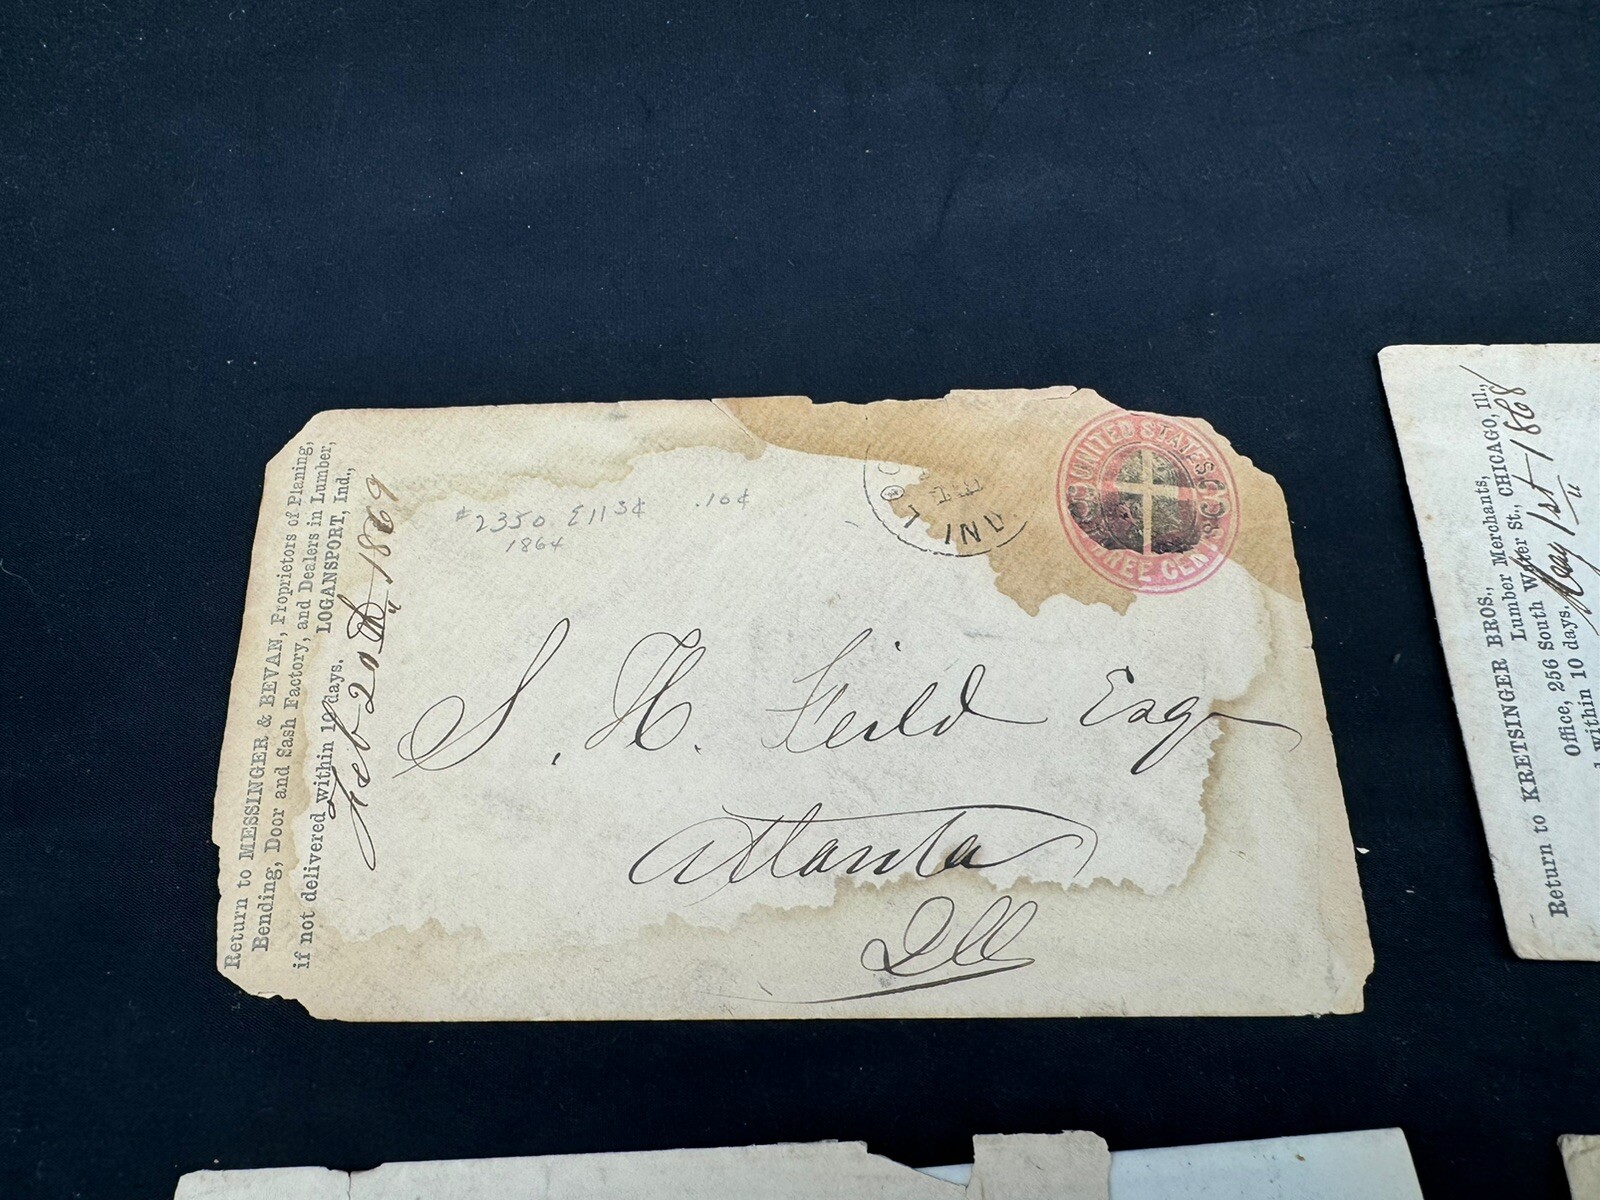 Return to MESSINGER & BEVAN, Proprietors of Planing,
Bending, Door and Sash Factory, and Dealers in Lumber,
if not delivered within 10 days. LOGANSPORT, Ind.,
Feb 20th 1869
#2350. E113¢ .10¢
1864
IND
UNITED STATES
THREE CENTS
S. H. Feild Esq
Atlanta
Ill
Return to KRETSINGER BROS., Lumber Merchants,
Office, 256 South Water St., CHICAGO, Ill.,
within 10 days.
May 1st 1868